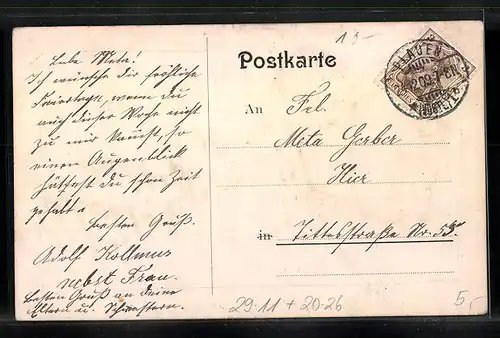 Liebe Meta!
Ich wünsche dir fröhliche
Feiertage, wenn du
auch dieser Woche nicht
zu mir kamst, so
einen Augenblick
hättest du schon Zeit
gehabt.
Besten Gruß.
Adolf Kollmus
nebst Frau.
Besten Gruß an deine
Eltern u. Schwestern.
1 x-
Postkarte
PLAUEN
An Frl.
Meta Gerber
Hier
in Tittelstraße Nr. 53.
29-11 + 20-26
5,-